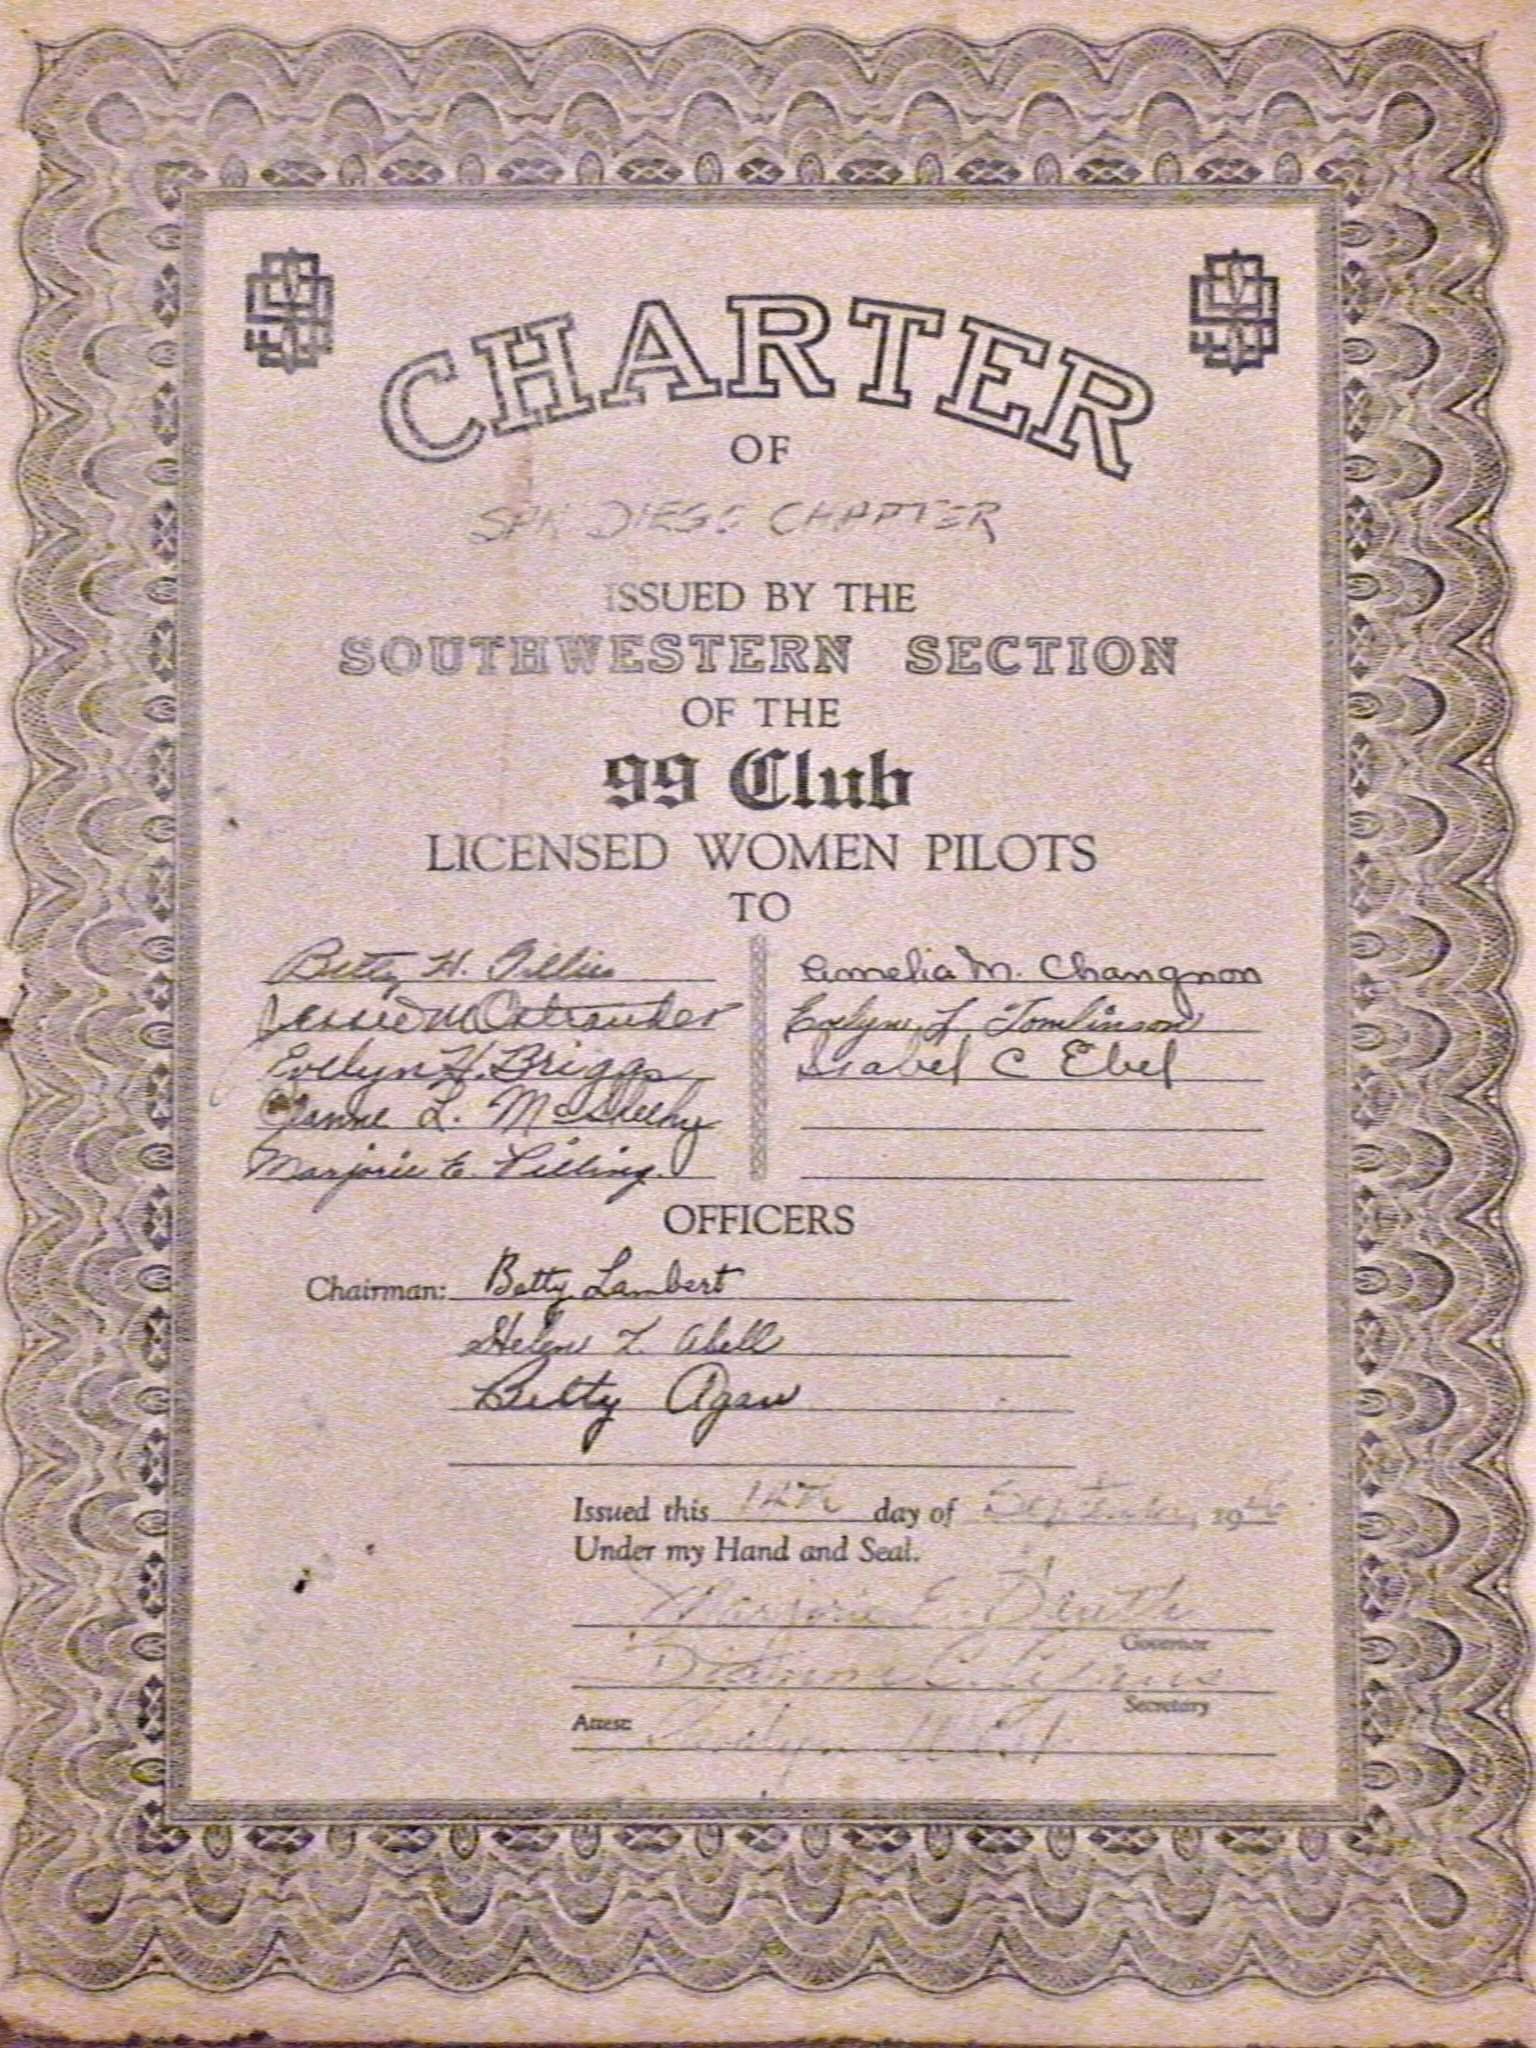 CHARTER
OF
SAN DIEGO CHAPTER
ISSUED BY THE
SOUTHWESTERN SECTION
OF THE
99 Club
LICENSED WOMEN PILOTS
TO
Betty H. Gillies
Jessie M Ostrander
Evelyn H. Briggs
Jeanne L. McSheehy
Marjorie E. Pilling
Amelia M. Changnon
Evelyn L Tomlinson
Isabel C Ebel
OFFICERS
Chairman: Betty Lambert
Helen L Abell
Betty Agaw
Issued this 12th day of September, 1946
Under my Hand and Seal.
Marjorie E.
Governor
C.
Secretary
Attest: